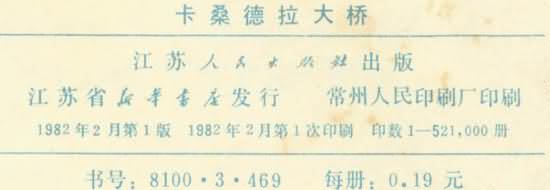 卡桑德拉大桥
江苏人民出版社出版
江苏省新华书店发行 常州人民印刷厂印刷
1982年2月第1版 1982年2月第1次印刷 印数1—521,000册
书号：8100·3·469 每册：0.19元